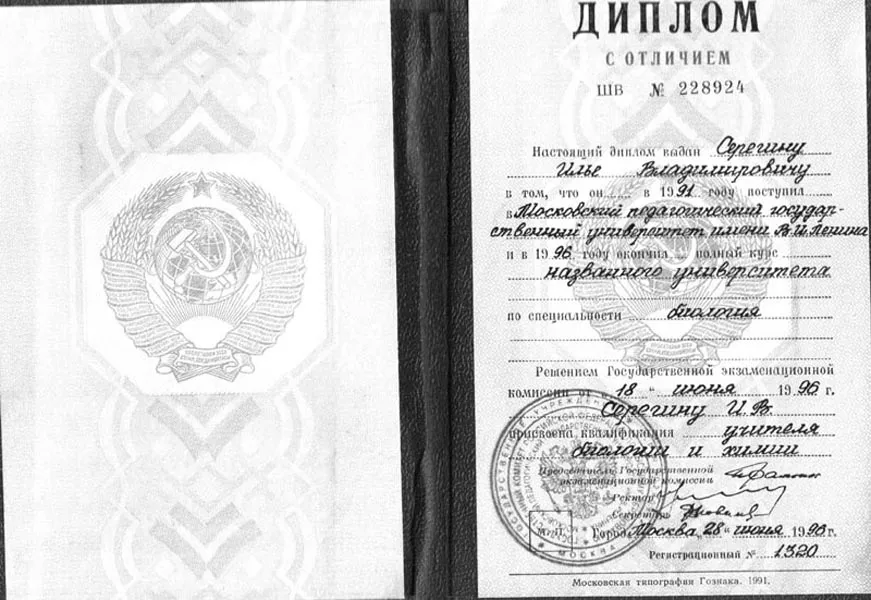 ДИПЛОМ
С ОТЛИЧИЕМ
ШВ № 228924
Настоящий диплом выдан Серегину
Илье Владимировичу
в том, что он в 1991 году поступил
в Московский педагогический государ-
ственный университет имени В.И. Ленина
и в 1996 году окончил полный курс
названного университета
по специальности биология
Решением Государственной экзаменационной
комиссии от „18“ июня 1996 г.
Серегину И.В.
присвоена квалификация учителя
биологии и химии
Председатель Государственной
экзаменационной комиссии
Ректор
Секретарь
Город Москва „28“ июня 1996 г.
Регистрационный № 1320
Московская типография Гознака. 1991.
МОСКВА